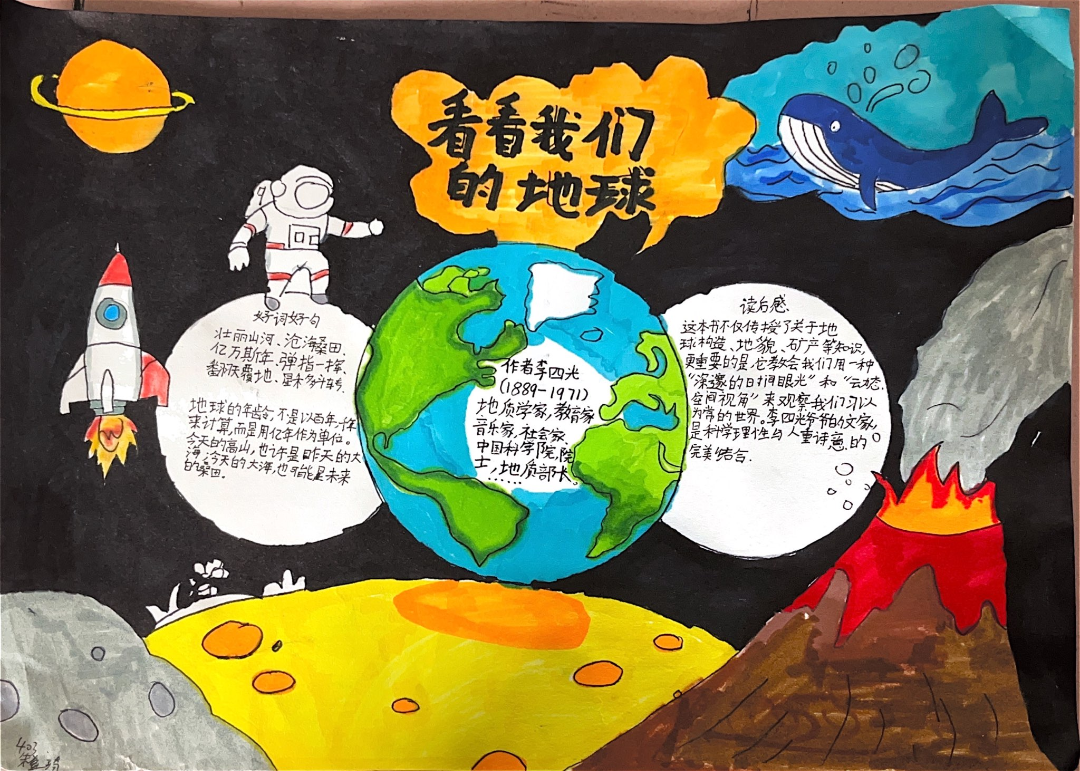 看看我们
的地球
好词好句
壮丽山河、沧海桑田、
亿万斯年、弹指一挥、
翻天覆地、
地球的年龄,不是以百年、千年
来计算,而是用亿年作为单位。
今天的高山,也许是昨天的大
海;今天的大海,也可能是未来
的桑田。
作者李四光
(1889-1971)
地质学家,教育家
音乐家,社会家、
中国科学院,院
士,地质部长。
……
读后感
这本书不仅传授了关于地
球构造、地貌、矿产等知识,
更重要的是,它教会我们用一种
“深邃的时间眼光”和“
空间视角”来观察我们习以
为常的世界。李四光爷爷的文章,
是科学理性与人重诗意的
完美结合.
403